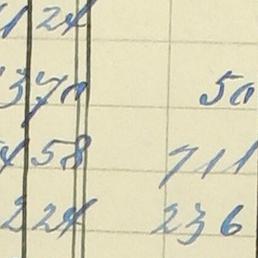 124
370 50
458 711
224 236